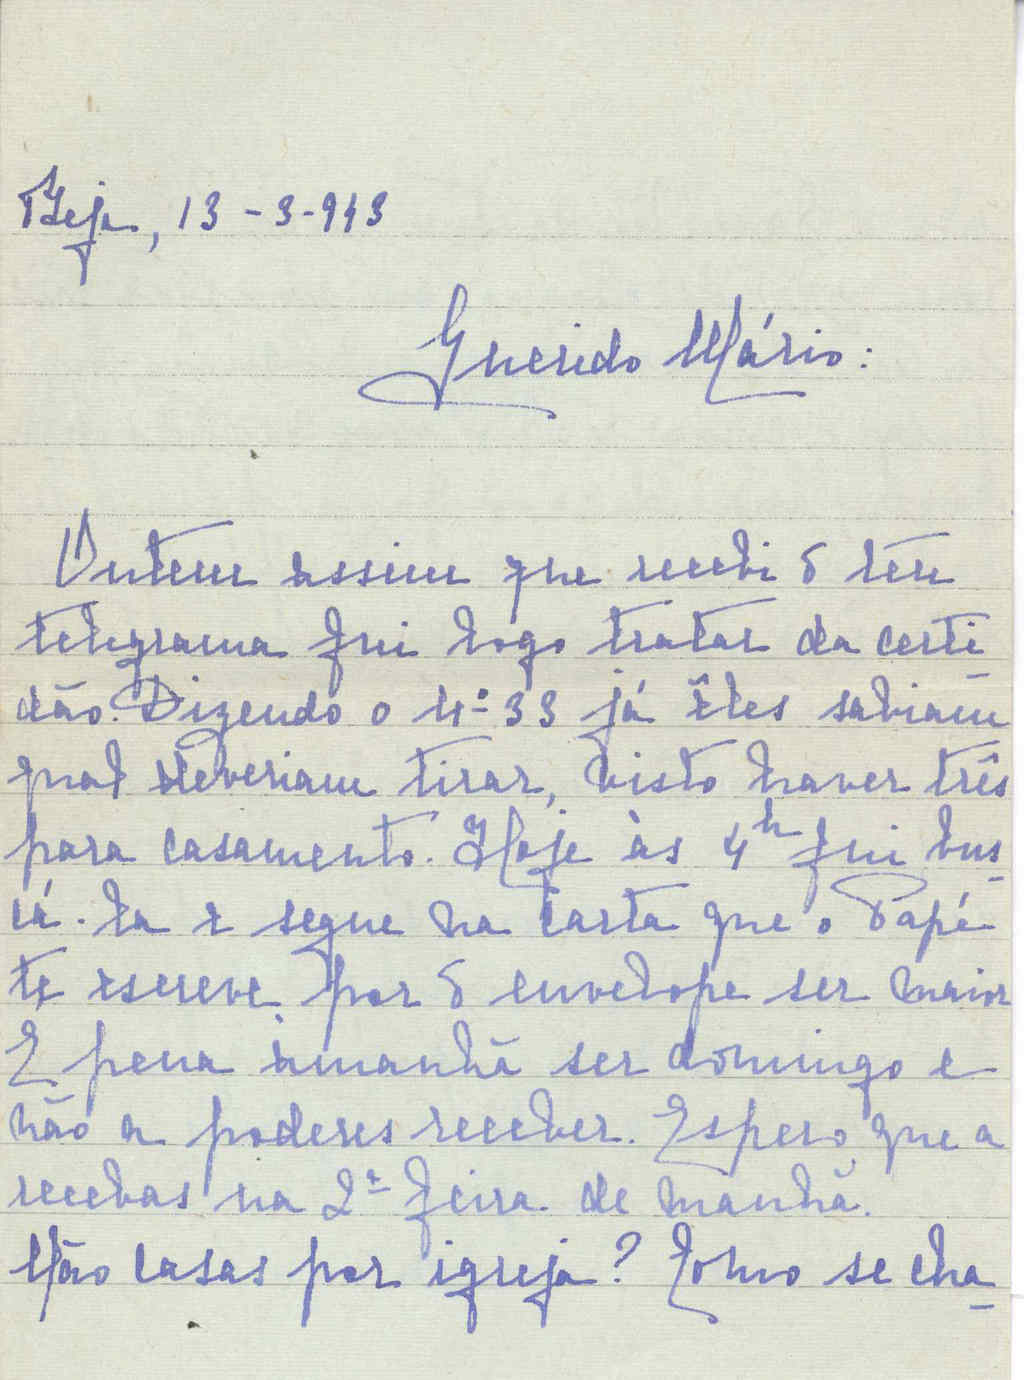 Beja, 13-3-943
Querido Mário:
Ontem assim que recebi o teu
telegrama fui logo tratar da certi
dão. Dizendo o nº 33 já êles sabiam
qual deveriam tirar, visto haver três
para casamento. Hoje às 4h fui bus-
cá-la e segue na carta que o Papá
te escreve por o envelope ser maior
É pena àmanhã ser domingo e
não a poderes receber. Espero que a
recebas na 2ª feira de manhã.
Não casas por igreja? Como se cha-